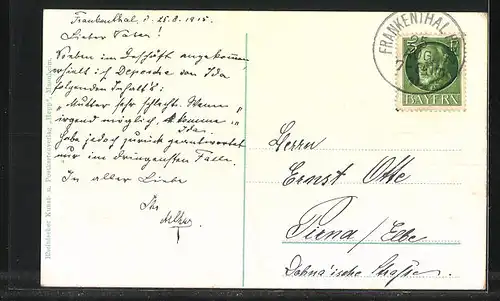 Frankenthal, d. 25.8.1915.
Lieber Vater!
Soeben im Geschäft angekommen,
erhielt ich Depesche von Ida
folgenden Inhalt's:
"Mutter sehr schlecht. Wenn
irgend möglich, komme."
Ida.
Habe jedoch zurück geantwortet
nur im dringensten Falle.
In aller Liebe
Ihr
FRANKENTHAL
5 PF
BAYERN
Herrn
Ernst Otte
Pirna/Elbe
Dohna'ische Straße
Rheinischer Kunst- u. Postkartenverlag "Hepp", Mannheim.